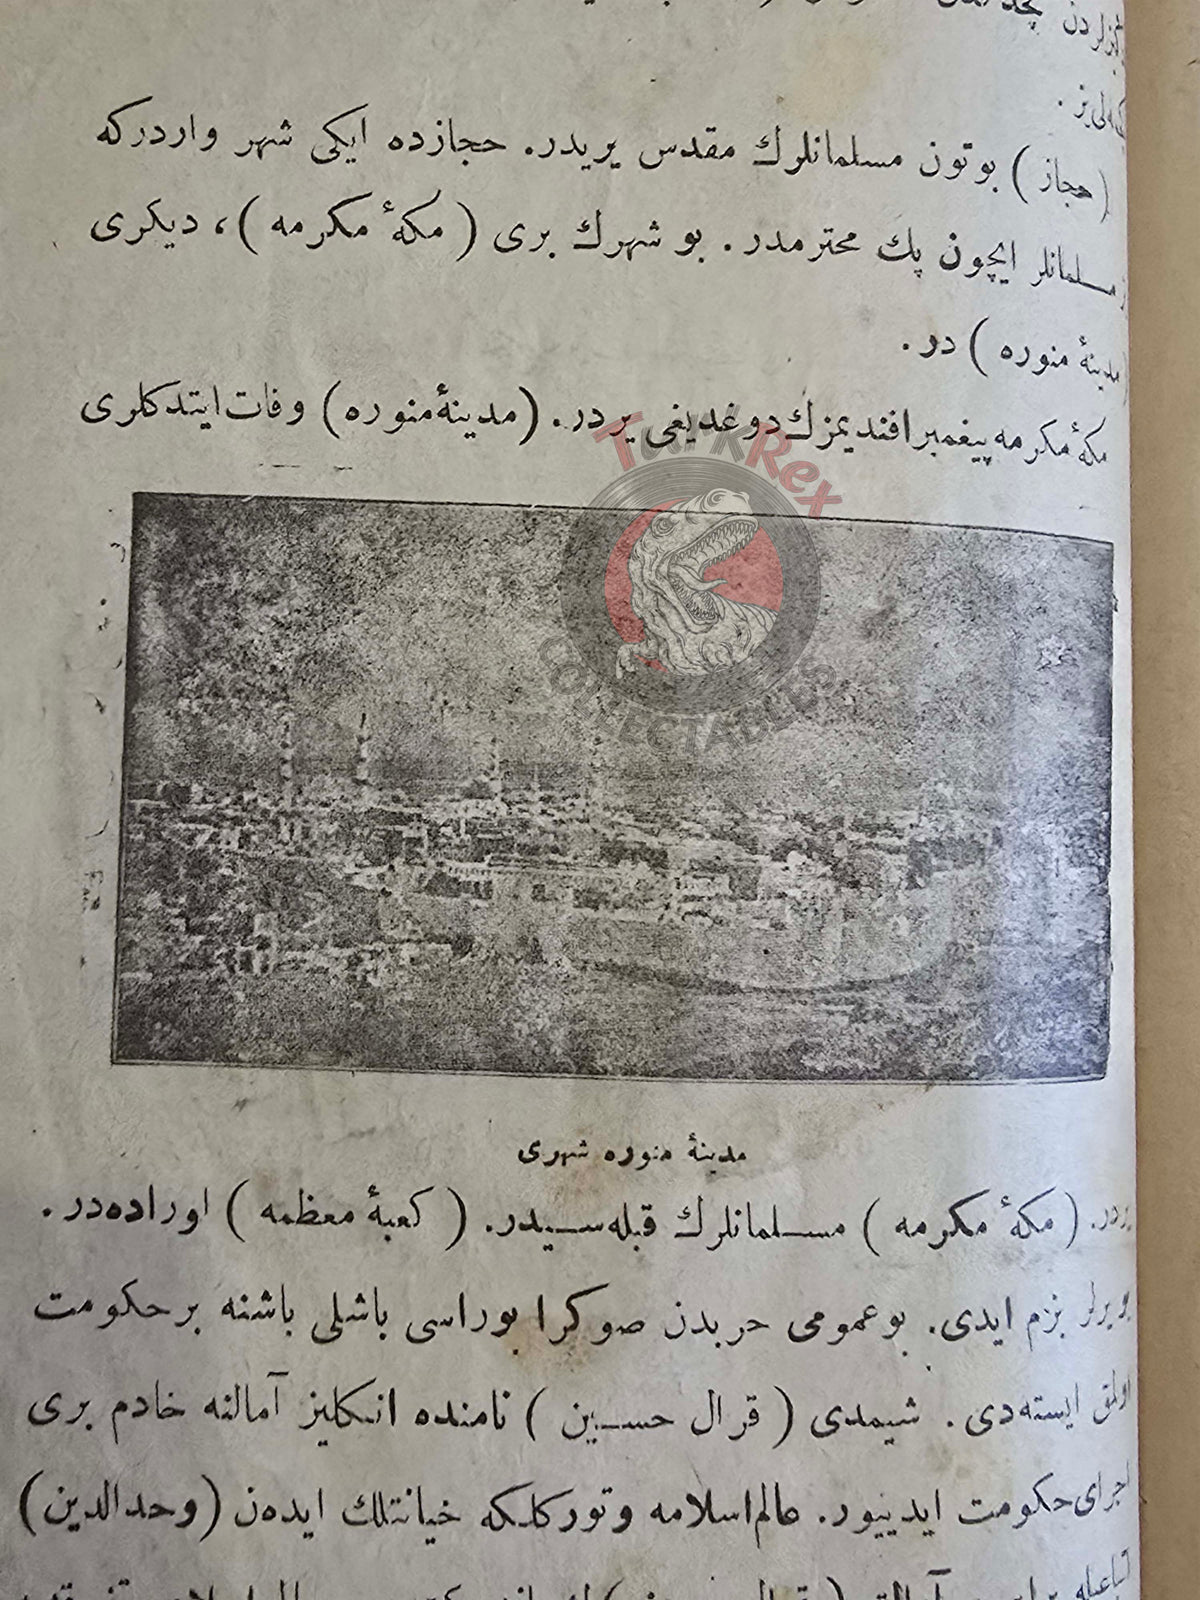 (حجاز) بوتون مسلمانلرك مقدس يريدر. حجازده ايكى شهر واردركه
مسلمانلر ايچون پك محترمدر. بو شهرك برى (مكهٔ مكرمه)، ديكرى
مدينهٔ منوره) در.
مكهٔ مكرمه پيغمبر افنديمزك دوغديغى يردر. (مدينهٔ منوره) وفات ايتدكلرى
TurkRex
COLLECTABLES
مدينهٔ منوره شهرى
يردر. (مكهٔ مكرمه) مسلمانلرك قبله‌سيدر. (كعبهٔ معظمه) اوراده‌در.
بو يرلر بزم ايدى. بو عمومى حربدن صوكرا بوراسى باشلى باشنه بر حكومت
اولمق ايسته‌دى. شيمدى (قرال حسين) نامنده انكليز آمالنه خادم برى
اجراى حكومت ايدييور. عالم اسلامه و توركلكه خيانتلك ايده‌ن (وحدالدين)